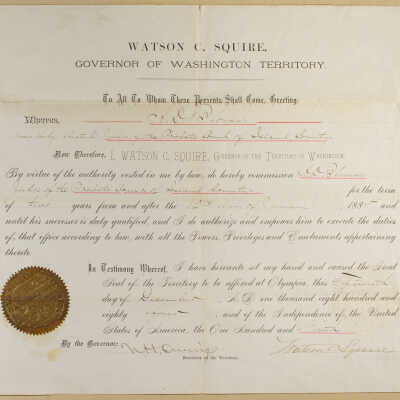 WATSON C. SQUIRE,
GOVERNOR OF WASHINGTON TERRITORY.
To All To Whom These Presents Shall Come, Greeting:
Whereas,
was duly elected Judge of the Probate Court of Island County
Now Therefore, I, WATSON C. SQUIRE, GOVERNOR OF THE TERRITORY OF WASHINGTON,
By virtue of the authority vested in me by law, do hereby commission
Judge of the Probate Court of Island Counties for the term
of two years from and after the 188 and
until his successor is duly qualified, and I do authorize and empower him to execute the duties
of that office according to law, with all the Powers, Privileges and Emoluments appertaining
thereto.
In Testimony Whereof, I have hereunto set my hand and caused the Great
Seal of the Territory to be affixed at Olympia, this
day of December A.D. one thousand eight hundred and
eighty and of the Independence of the United
States of America, the One Hundred and
By the Governor: Watson C. Squire
Secretary of the Territory.